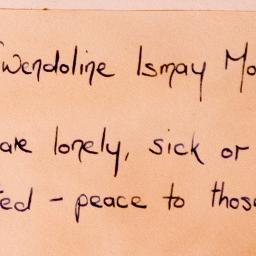 Gwendoline Ismay Mo
are lonely, sick or
ted - peace to those